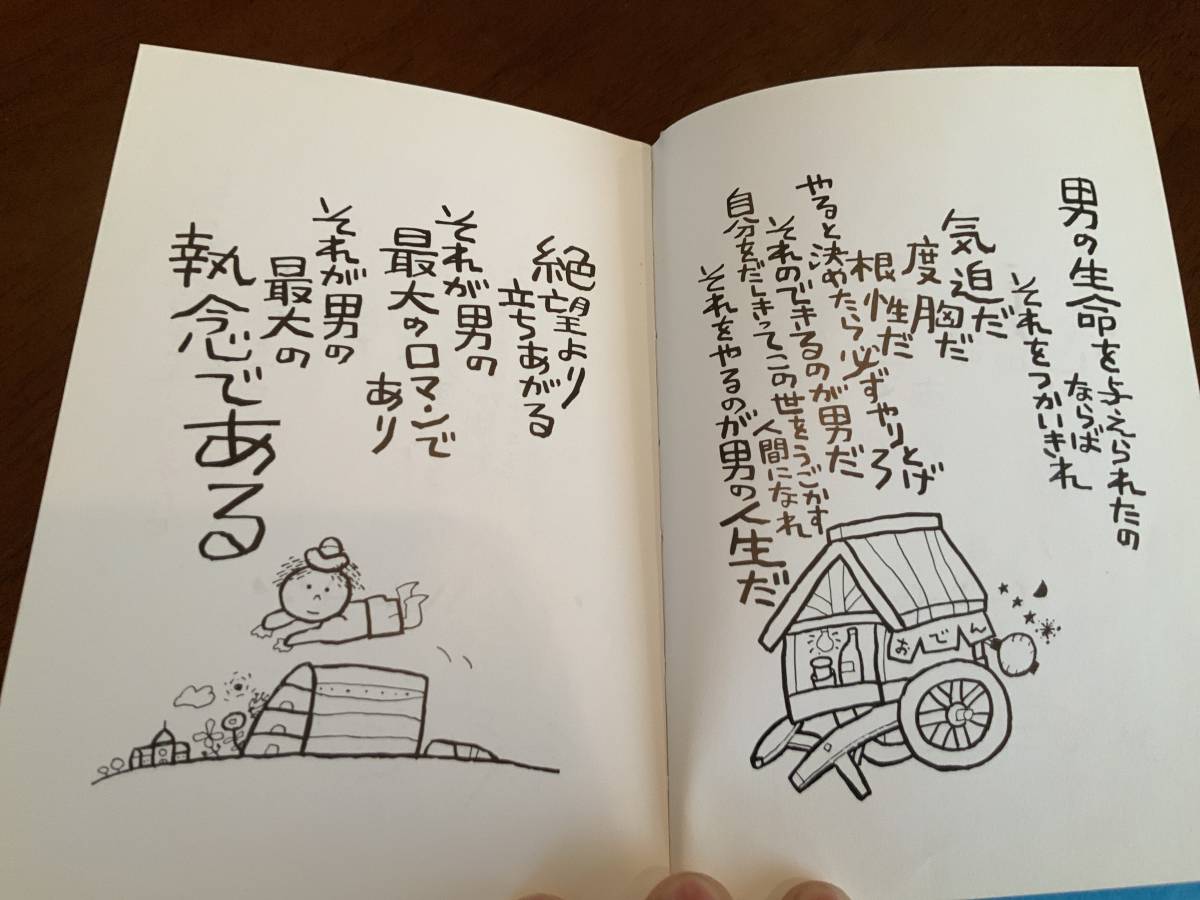 男の生命を与えられたの
ならば
それをつかいきれ
気迫だ
度胸だ
根性だ
やると決めたら必ずやりとげろ
それのできるのが男だ
自分をだしきってこの世をうごかす
人間になれ
それをやるのが男の人生だ
おでん
絶望より
立ちあがる
それが男の
最大のロマンで
あり
それが男の
最大の
執念である